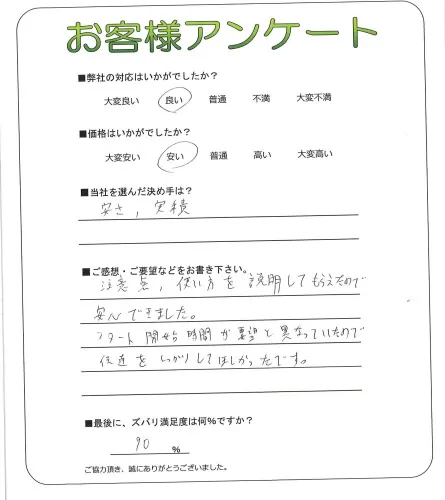 お客様アンケート
■弊社の対応はいかがでしたか?
大変良い 良い 普通 不満 大変不満
■価格はいかがでしたか?
大変安い 安い 普通 高い 大変高い
■当社を選んだ決め手は?
安さ, 実積
■ご感想・ご要望などをお書き下さい。
注意点, 使い方を説明してもらえたので
安心できました。
スタート開始時間が要望と異なっていたので
伝達をしっかりしてほしかったです。
■最後に、ズバリ満足度は何%ですか?
90 %
ご協力頂き、誠にありがとうございました。